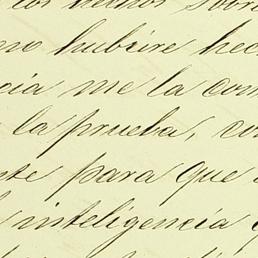 los hechos sobre
no hubiere hec
cia me la com
la prueba, co
te para que
inteligencia